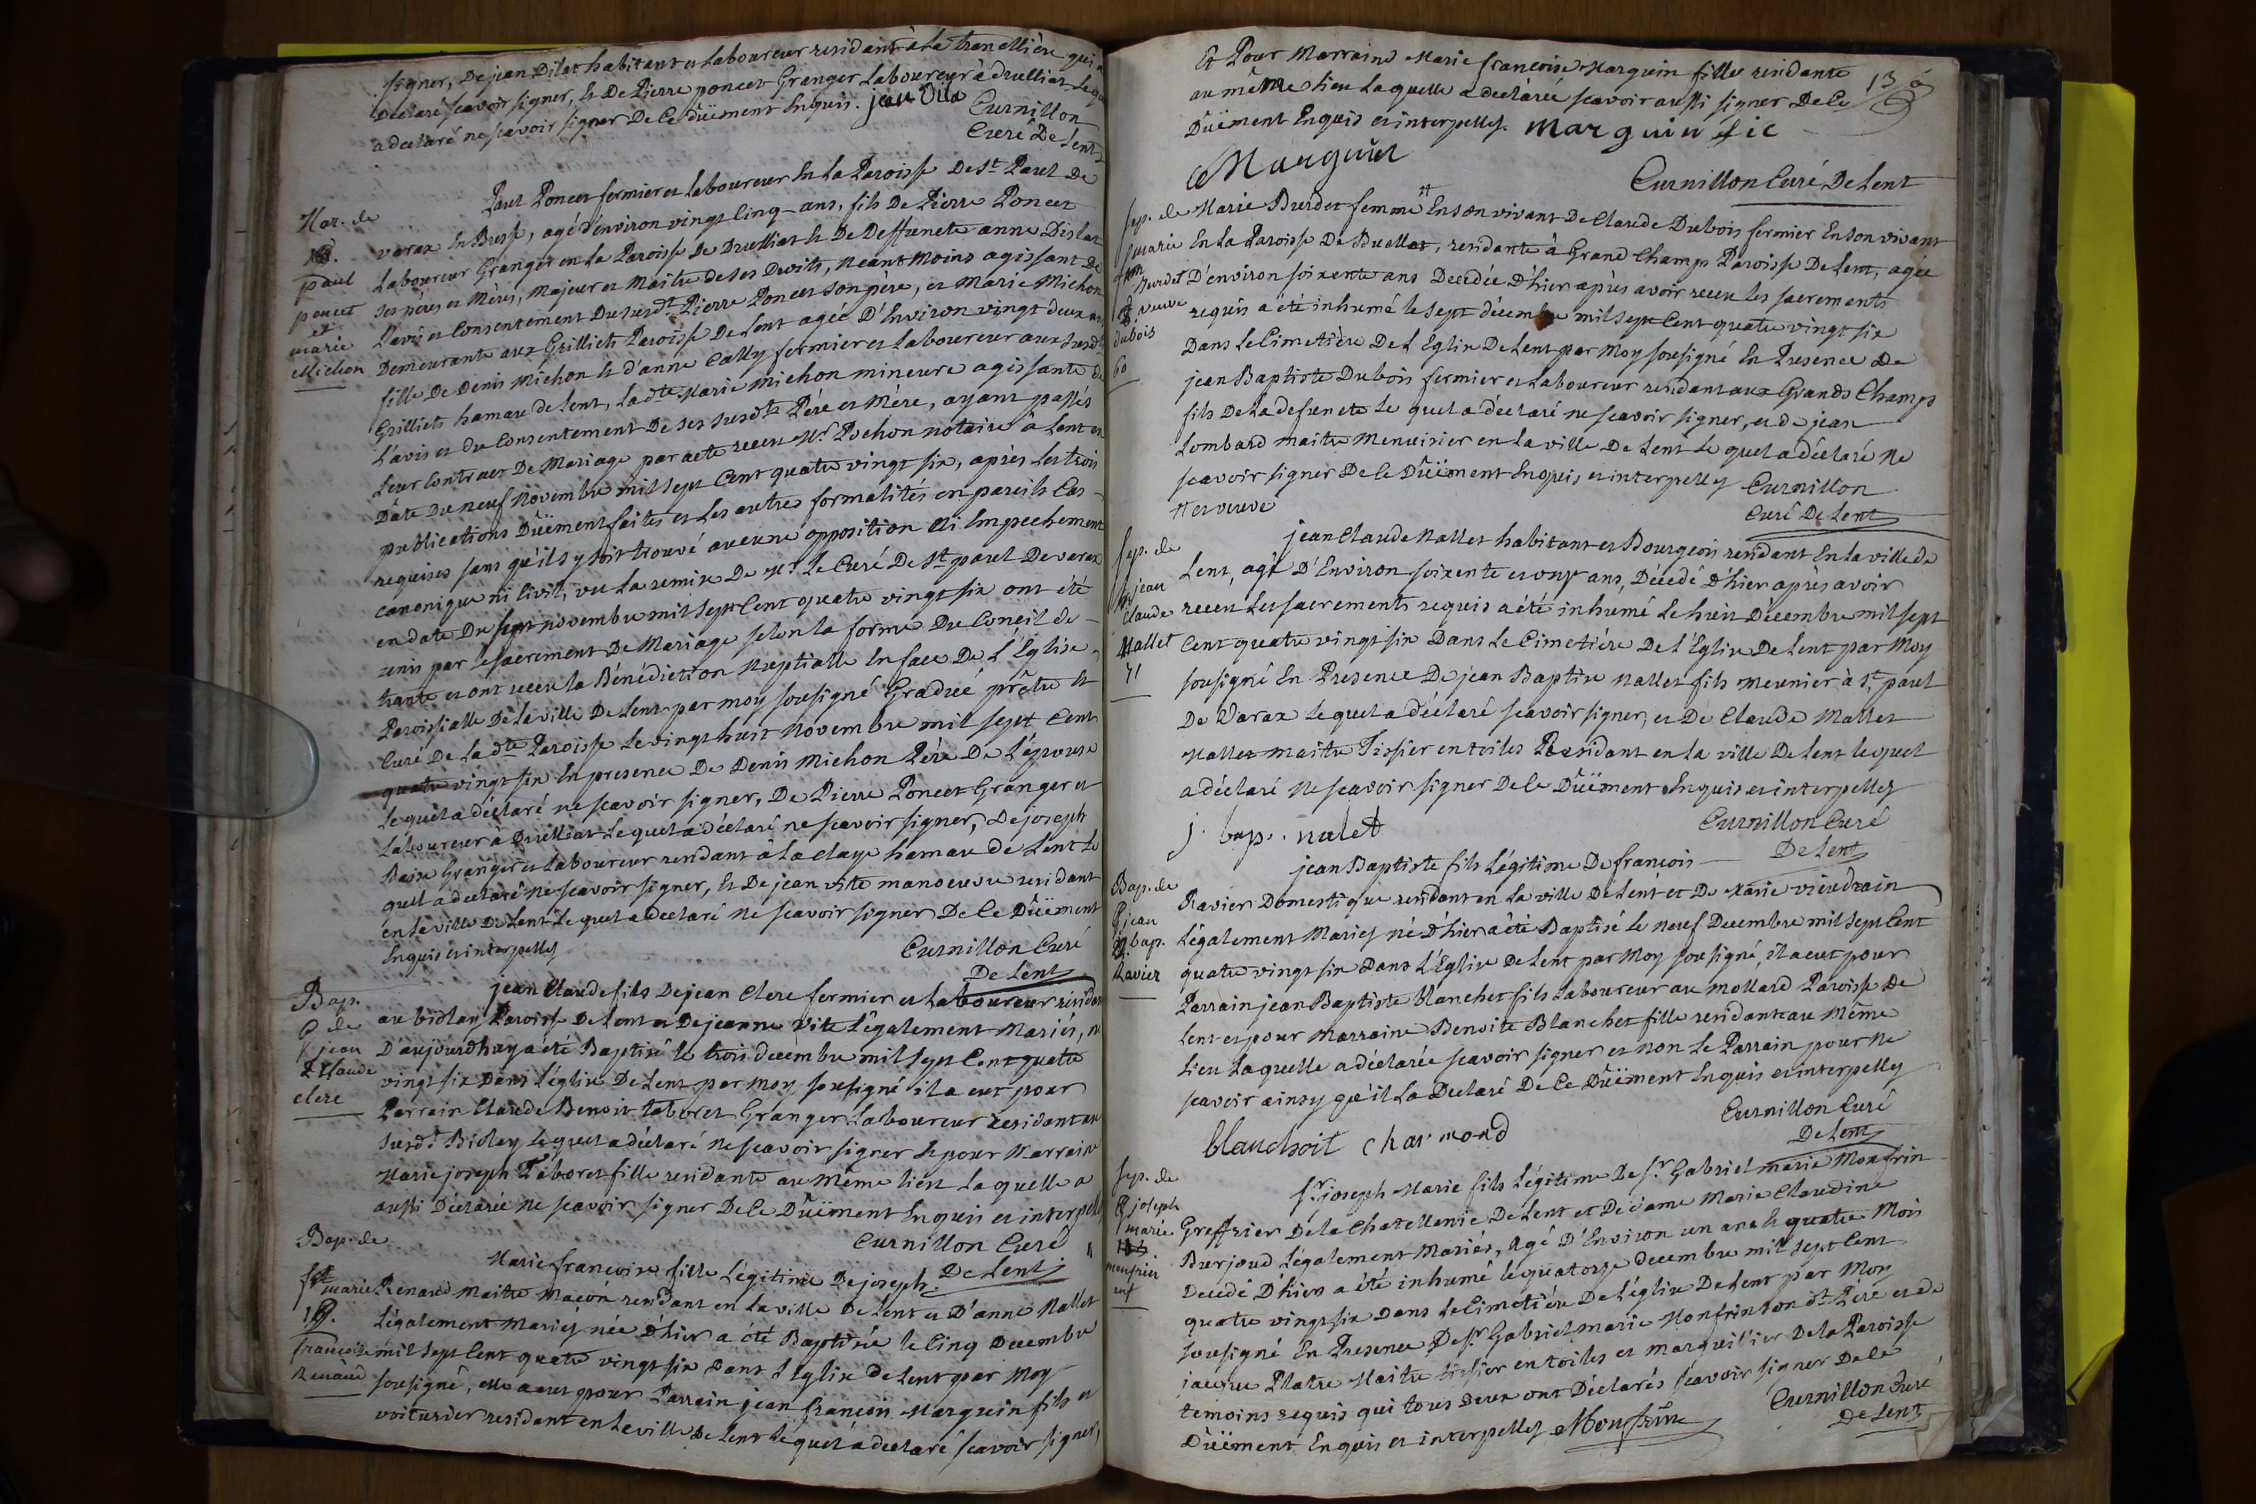 signer, De jean Dilat habitant et Laboureur residant à La tranclliere qui a
déclaré scavoir signer, Et De Pierre poncet Granger Laboureur à druilliat Le quel
a déclaré ne scavoir signer De Ce duëment Enquis. jean Dila
Curnillon
Curé De Lent
Mar. de
paul
poncet
et
marie
Michon
Paul Poncet fermier et Laboureur En La Paroisse De St. Paul De
varax En Bresse, agé d'environ vingt Cinq ans, fils De Pierre Poncet
Laboureur Granger en La Paroisse De Druilliat Et De Deffunete anne Dislat
ses pères et Mères, majeur et Maitre de ses Droits, néantMoins agissant De
L'avis et Consentement Du susdt. Pierre Poncet son père, et Marie Michon
Demeurante aux Grilliets Paroisse De Lent agée D'Environ vingt deux ans
fille De Denis Michon Et d'anne Cally fermier et Laboureur aux susdts
Grilliets hamau de Lent, La dte. Marie Michon mineure agissante de
L'avis et du Consentement De ses susdts Père et Mère, ayant passés
Leur Contract De Mariage par acte receu Mr. Pochon notaire à Lent en
Date Du neuf Novembre mil sept Cent quatre vingt six, après Les trois
publications Duëment faites et Les autres formalités en pareils Cas
requises sans qu'il s'y soit trouvé aucune opposition Ni Empechement
canonique ni Civil, vu La remise De Mr. Le Curé De St. paul De varax
en date Du sept novembre mil sept Cent quatre vingt six ont été
unis par Le sacrement De Mariage selon La forme Du Concil de
trante et ont receu la Bénédiction Nuptialle En face De L'Eglise
Paroissialle De La ville De Lent par moy sousigné Gradué prêtre Et
Curé De La dte Paroisse Le vingt huit Novembre mil sept Cent
quatre vingt six En presence De Denis Michon Père De L'épouse
Le quel a déclaré ne scavoir signer, De Pierre Poncet Granger et
Laboureur à Druilliat Le quel a déclaré ne scavoir signer, De joseph
Granger et Laboureur residant à La Claye hamau de Lent Le
quel a déclaré ne scavoir signer, Et De jean vite manoeuvre residant
en La ville De Lent Le quel a déclaré ne scavoir signer De Ce Duëment
Enquis et interpellés
Curnillon Curé
De Lent
Bap.
de
jean
Claude
clerc
jean Claude fils De jean Clerc fermier et Laboureur residant
au biolay Paroisse De Lent et De jeanne vite Légalement Mariés, né
D'aujourdhuy a été Baptisé Le trois decembre mil sept Cent quatre
vingt six Dans L'église De Lent par moy sousigné il a eut pour
Parrain Claude Benoit taboret Granger Laboureur residant au
susdt Biolay Le quel a déclaré ne scavoir signer Et pour Marraine
Marie joseph Taboret fille residante au Même lieu La quelle a
aussi Déclarée ne scavoir signer De Ce Duëment Enquis et interpellés
Curnillon Curé
De Lent
Bap. de
marie
francoise
Renaud
Marie francoise fille Légitime De joseph
Renaud Maitre Macon residant en La ville De Lent et D'anne Nallet
Légalement Mariés née D'hier a été Baptisée le Cinq Decembre
mil sept Cent quatre vingt six Dans L'Eglise de Lent par Moy
sousigné, elle a eut pour Parrain jean francois Marguin fils et
voiturier residant en La ville De Lent Le quel a déclaré scavoir signer,
Et Pour Marraine Marie francoise Marguin fille residante
au même lieu La quelle a déclarée scavoir aussi signer De Ce
Duëment Enquis et interpellés. Marguin fic
Marguin
Curnillon Curé De Lent
Sep. de
marie
Burdet
veuve
dubois
60
Marie Burdet femme Enson vivant De Claude Dubois fermier Enson vivant
En La Paroisse De Buellas, residante à Grand Champs Paroisse De Lent, agée
D'environ soixente ans Decedée D'hier après avoir receu les sacrements
requis a été inhumé le sept décembre mil sept Cent quatre vingt six
Dans Le Cimetière De L'Eglise De Lent par Moy sousigné En Presence De
jean Baptiste Dubois fermier et Laboureur residant aux Grands Champs
fils De La defunete Le quel a déclaré ne scavoir signer, et De jean
Lombard maitre Menuisier en La ville De Lent Le quel a déclaré ne
scavoir signer De Ce Duëment Enquis, et interpellés Curnillon
et veuve
Curé De Lent
Sep. de
jean
Claude
Nallet
71
jean Claude Nallet habitant et Bourgeois residant En La ville de
Lent, agé D'Environ soixente et onze ans, Décedé D'hier après avoir
receu Les sacrements requis a été inhumé Le huit Décembre mil sept
Cent quatre vingt six Dans Le Cimetière De L'Eglise De Lent par Moy
sousigné En Presence De jean Baptiste Nallet fils Meunier à St. paul
De Varax Le quel a déclaré scavoir signer, et De Claude Mallet
Nallet maitre Tissier en toiles Residant en La ville De Lent lequel
a déclaré ne scavoir signer De Ce Duëment Enquis et interpellés
j. bap. nalet
Curnillon Curé
De Lent
Bap. de
jean
bap.
Ravier
jean Baptiste fils Légitime De francois
Ravier Domestique residant en La ville De Lent et De Marie vieudrain
Légalement Mariés né D'hier a été Baptisé le neuf Decembre mil sept Cent
quatre vingt six Dans L'Eglise De Lent par Moy sousigné, il a eut pour
Parrain jean Baptiste Blanchet fils Laboureur au mollard Paroisse De
Lent et pour Marraine Benoite Blanchet fille residante au Même
Lieu La quelle a déclarée scavoir signer et non Le Parrain pour ne
scavoir ainsy qu'il L'a Declaré De Ce Duëment Enquis et interpellés
Curnillon Curé
De Lent
blanchoit charmond
Sep. de
joseph
marie
monfrin
Sr. joseph Marie fils Légitime De Sr. Gabriel marie Monfrin
Greffier De La Chatellenie De Lent et De dame Marie Claudine
Burjoud Légalement Mariés, Agé D'Environ un an et quatre Mois
Decedé D'hier a été inhumé le quatorze decembre mil sept Cent
quatre vingt six Dans Le Cimetière De L'église De Lent par Moy
sousigné En Presence De Sr. Gabriel marie Monfrin son dt. Père et de
jacque Platre Maitre tissier en toiles et marguillier De La Paroisse
temoins requis qui tous Deux ont Déclarés scavoir signer De Ce
Duëment Enquis et interpellés Monfrin
Curnillon Curé
De Lent